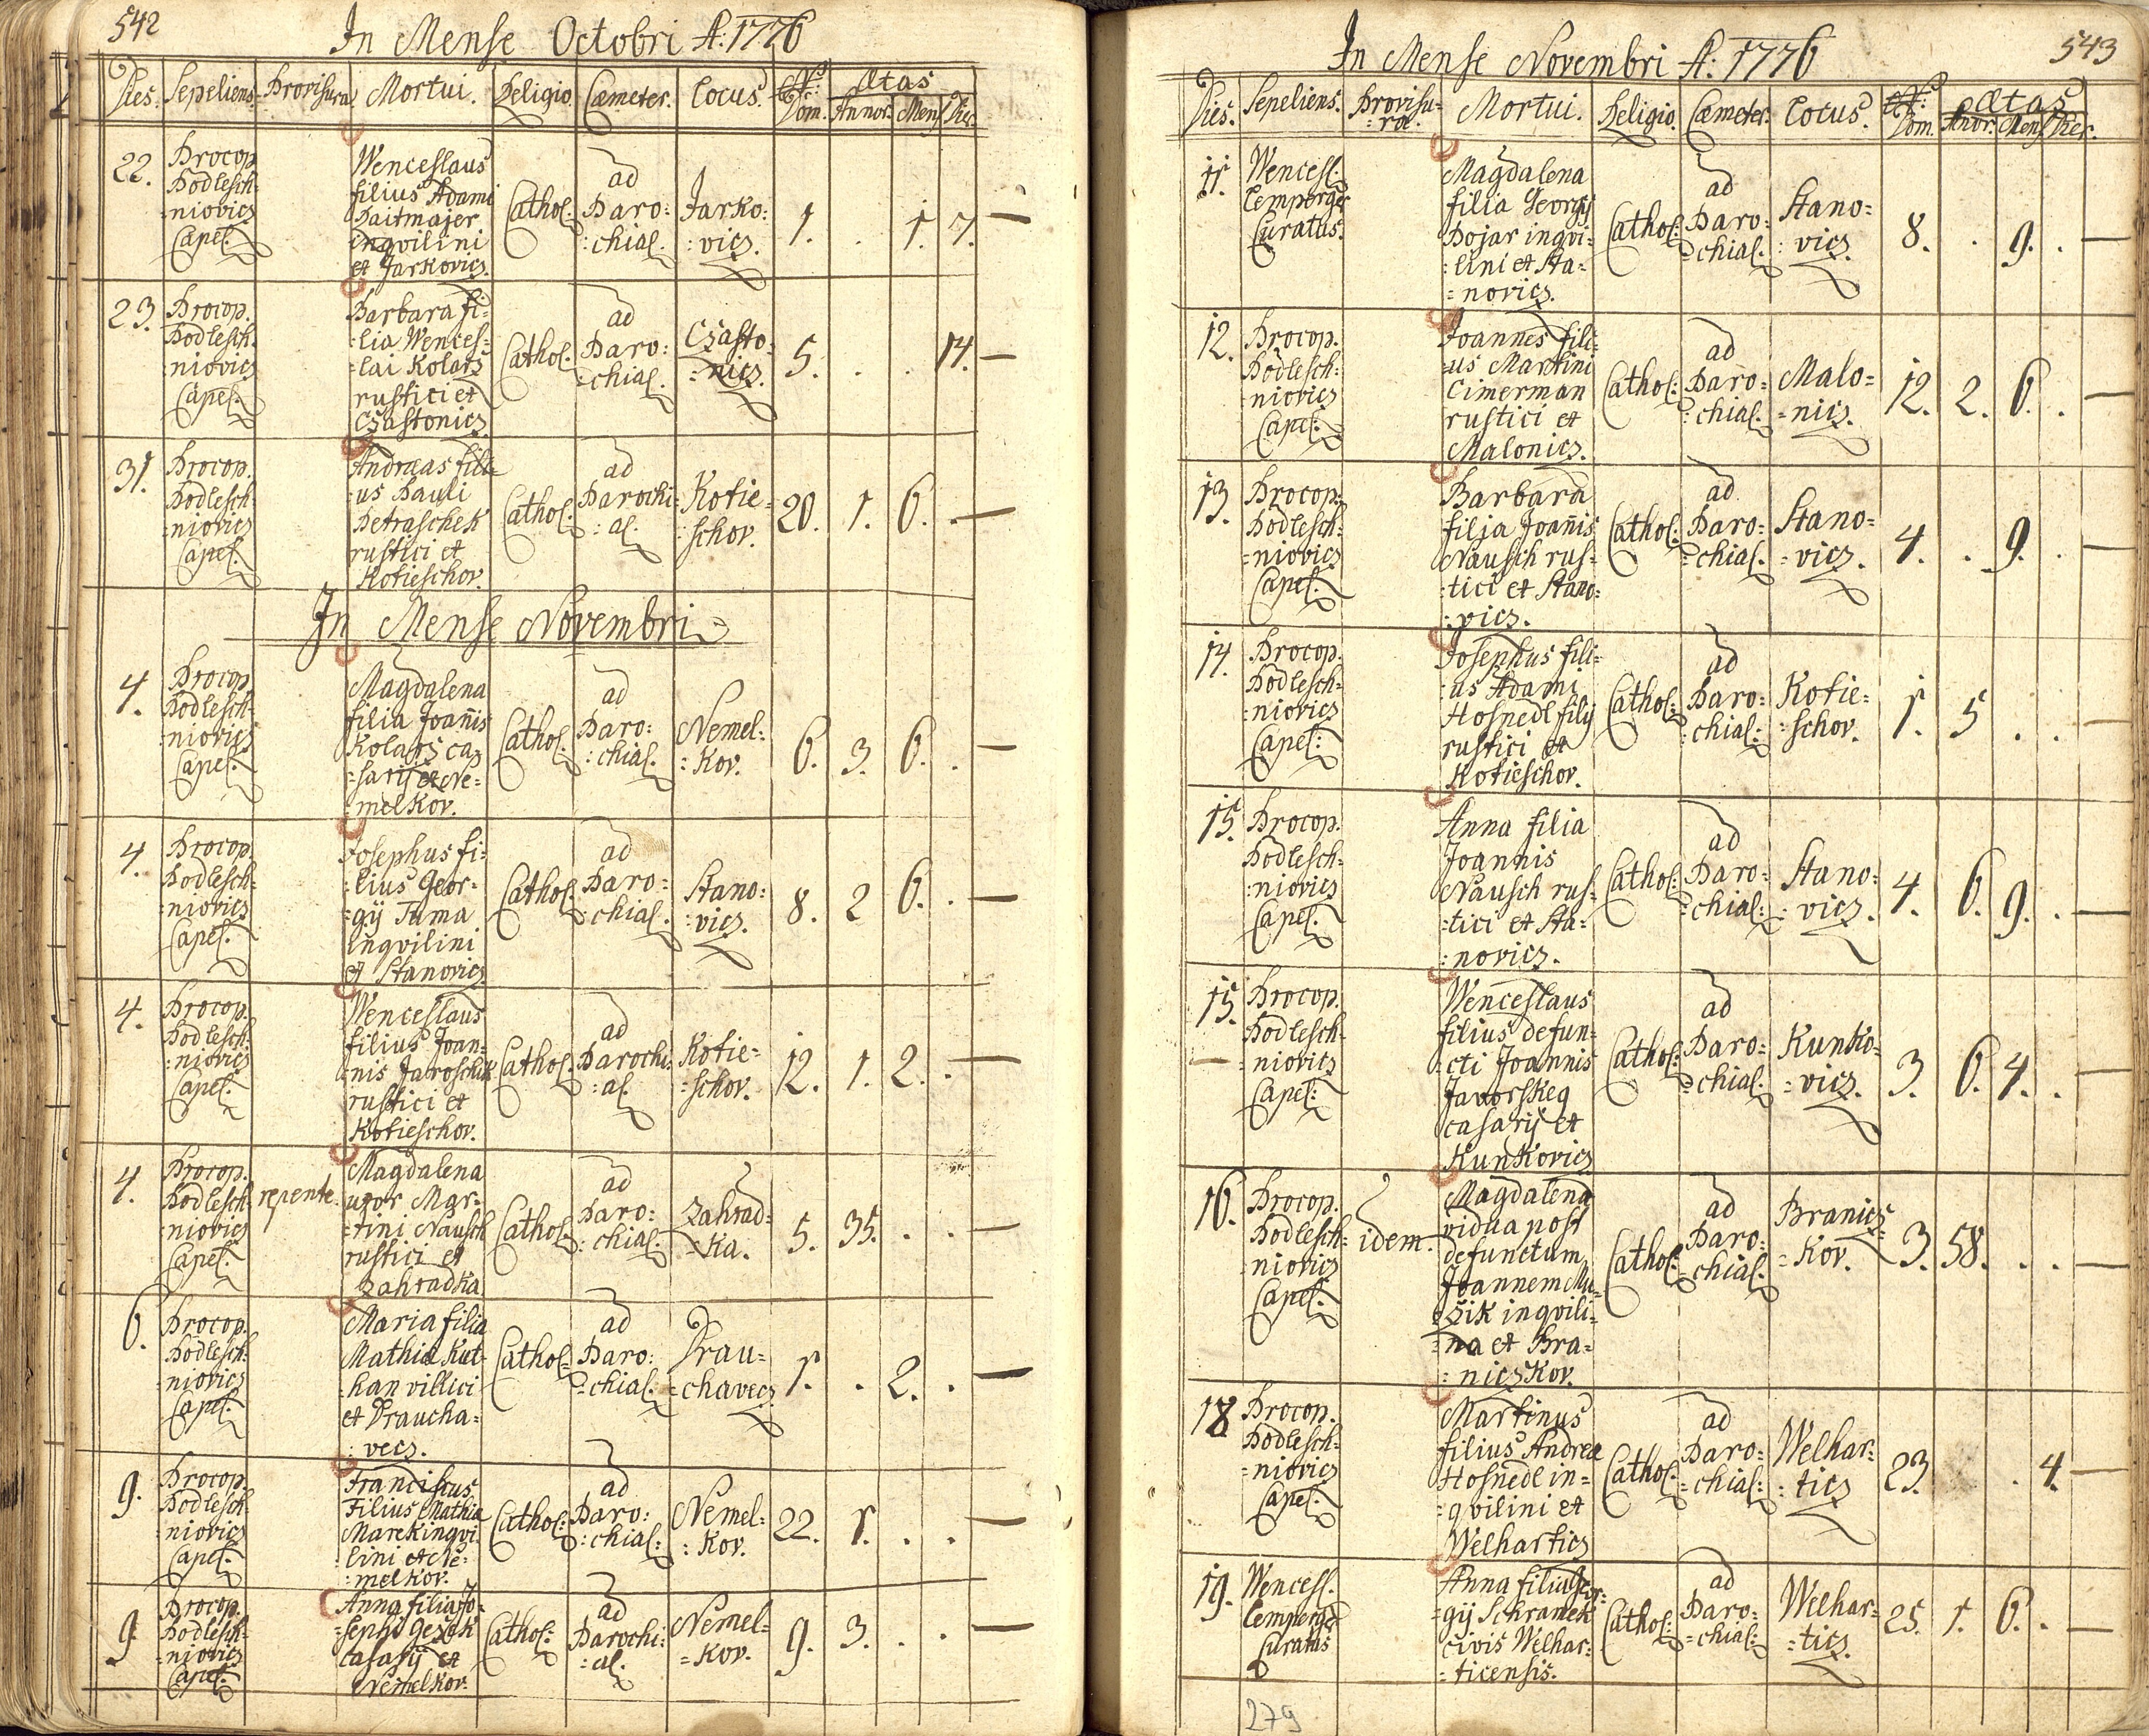 542
In Mense Octobri A: 1776
Dies. Sepeliens. Provisura Mortui. Religio. Cæmeter. Locus. Nr: Dom. Ætas Annor. Mens. Dies.
22. Procop. Podlesch: niovicz Capel.
Wenceslaus
filius Adami
Paitmajer
inqvilini
et Jarkovicz.
Cathol: ad Paro: :chial. Jarko: :vicz. 1. . 1. 7. —
23. Procop. Podlesch. niovicz Capel.
Barbara fi=
=lia Wences=
=lai Kolarz
rustici et
Czastonicz.
Cathol. ad Paro: =chial. Czasto= =nicz. 5. . . 14. —
31. Procop. Podlesch. niovicz Capel.
Andreas fili=
:us Pauli
Petraschek
rustici et
Kotieschov.
Cathol: ad Parochi= :al. Kotie= :schov. 20. 1. 6. . —
In Mense Novembri
4. Procop. Podlesch= :niovicz Capel.
Magdalena
filia Joañis
Kolarz ca=
=sarij et Ne=
=melkov.
Cathol: ad Paro: :chial. Nemel: :kov. 6. 3. 6. . —
4. Procop. Podlesch= :niovicz Capel.
Josephus fi=
=lius Geor=
=gij Tuma
inqvilini
et Stanovicz
Cathol: ad Paro= :chial. Stano: :vicz. 8. 2 6. . —
4. Procop. Podlesch. :niovicz Capel.
Wenceslaus
filius Joan=
=nis Jaroschik
rustici et
Kotieschov.
Cathol. ad Parochi= :al. Kotie= =schov. 12. 1. 2. . —
4. Procop. Podlesch= niovicz Capel. repente.
Magdalena
uxor Mar=
=tini Nausch
rustici et
Zahradka
Cathol: ad Paro: :chial: Zahrad= =ka. 5. 35. . . —
6. Procop. Podlesch= :niovicz Capel.
Maria filia
Mathiæ Kut=
=han villici
et Draucha=
:vecz.
Cathol: ad Paro: =chial. Drau= =chavecz 1. . 2. . —
9. Procop. Podlesch. niovicz Capel.
Franciscus
Filius Mathiæ
Marek inqvi
lini et Ne=
=melkov.
Cathol: ad Paro: :chial: Nemel= :kov. 22. 1. . . —
9 Procop. Podlesch= :niovicz Capel:
Anna filia Jo=
=sephi
casarij et
Nemelkov.
Cathol: ad Parochi: =al. Nemel= =kov. 9. 3. . . —
543
In Mense Novembri A: 1776
Dies. Sepeliens. Provisu= =ræ. Mortui. Religio. Cæmeter. Locus. Nr: Dom. Ætas Anor. Mens. Dies.
11. Wencesl. Lemperger Curatus.
Magdalena
filia Georgij
Pojar inqvi=
:lini et Sta=
=novicz.
Cathol: ad Paro: =chial. Stano= :vicz. 8. . 9. . —
12. Procop. Podlesch= :niovicz Capel:
Joannes fili=
:us Martini
Cimerman
rustici et
Malonicz.
Cathol: ad Paro= :chial. Malo= =nicz. 12. 2. 6. . —
13. Procop: Podlesch: =niovicz Capel.
Barbara
filia Joañis
Nausch rus=
:tici et Stano=
:vicz.
Cathol: ad Paro: =chial. Stano= =vicz. 4. . 9. . —
14. Procop. Podlesch= :niovicz Capel:
Josephus fili=
:us Adami
Hosnedl filij
rustici et
Kotieschov.
Cathol: ad Paro= :chial: Kotie= =schov. 1. 5 . . —
15. Procop. Podlesch= :niovicz Capel:
Anna filia
Joannis
Nausch rus=
=tici et Sta=
:novicz.
Cathol: ad Paro= =chial: Stano= :vicz. 4. 6. 9. . —
15. Procop. Podlesch= niovicz Capel:
Wenceslaus
filius defun=
=cti Joannis
Javorskeq
casarij et
Kunkovicz
Cathol: ad Paro= =chial. Kunko= =vicz. 3. 6. 4. . —
16. Procop. Podlesch= niovicz Capel. idem.
Magdalena
vidua post
defunctum
Joannem Mu=
=zik inqvili=
=na et Bra=
=niczkov.
Cathol: ad Paro: =chial. Branicz= =kov. 3. 58. . . —
18 Procop. Podlesch= =niovicz Capel:
Martinus
filius Andreæ
Hosnedl in=
=qvilini et
Welharticz
Cathol. ad Paro: =chial: Welhar= :ticz 23. . 4. —
19. Wencesl. Lemperger Curatus
Anna filia Geor=
=gij Schramek
civis Welhar=
=ticensis.
Cathol: ad Paro: =chial: Welhar= =ticz. 25. 1. 6. . —
279